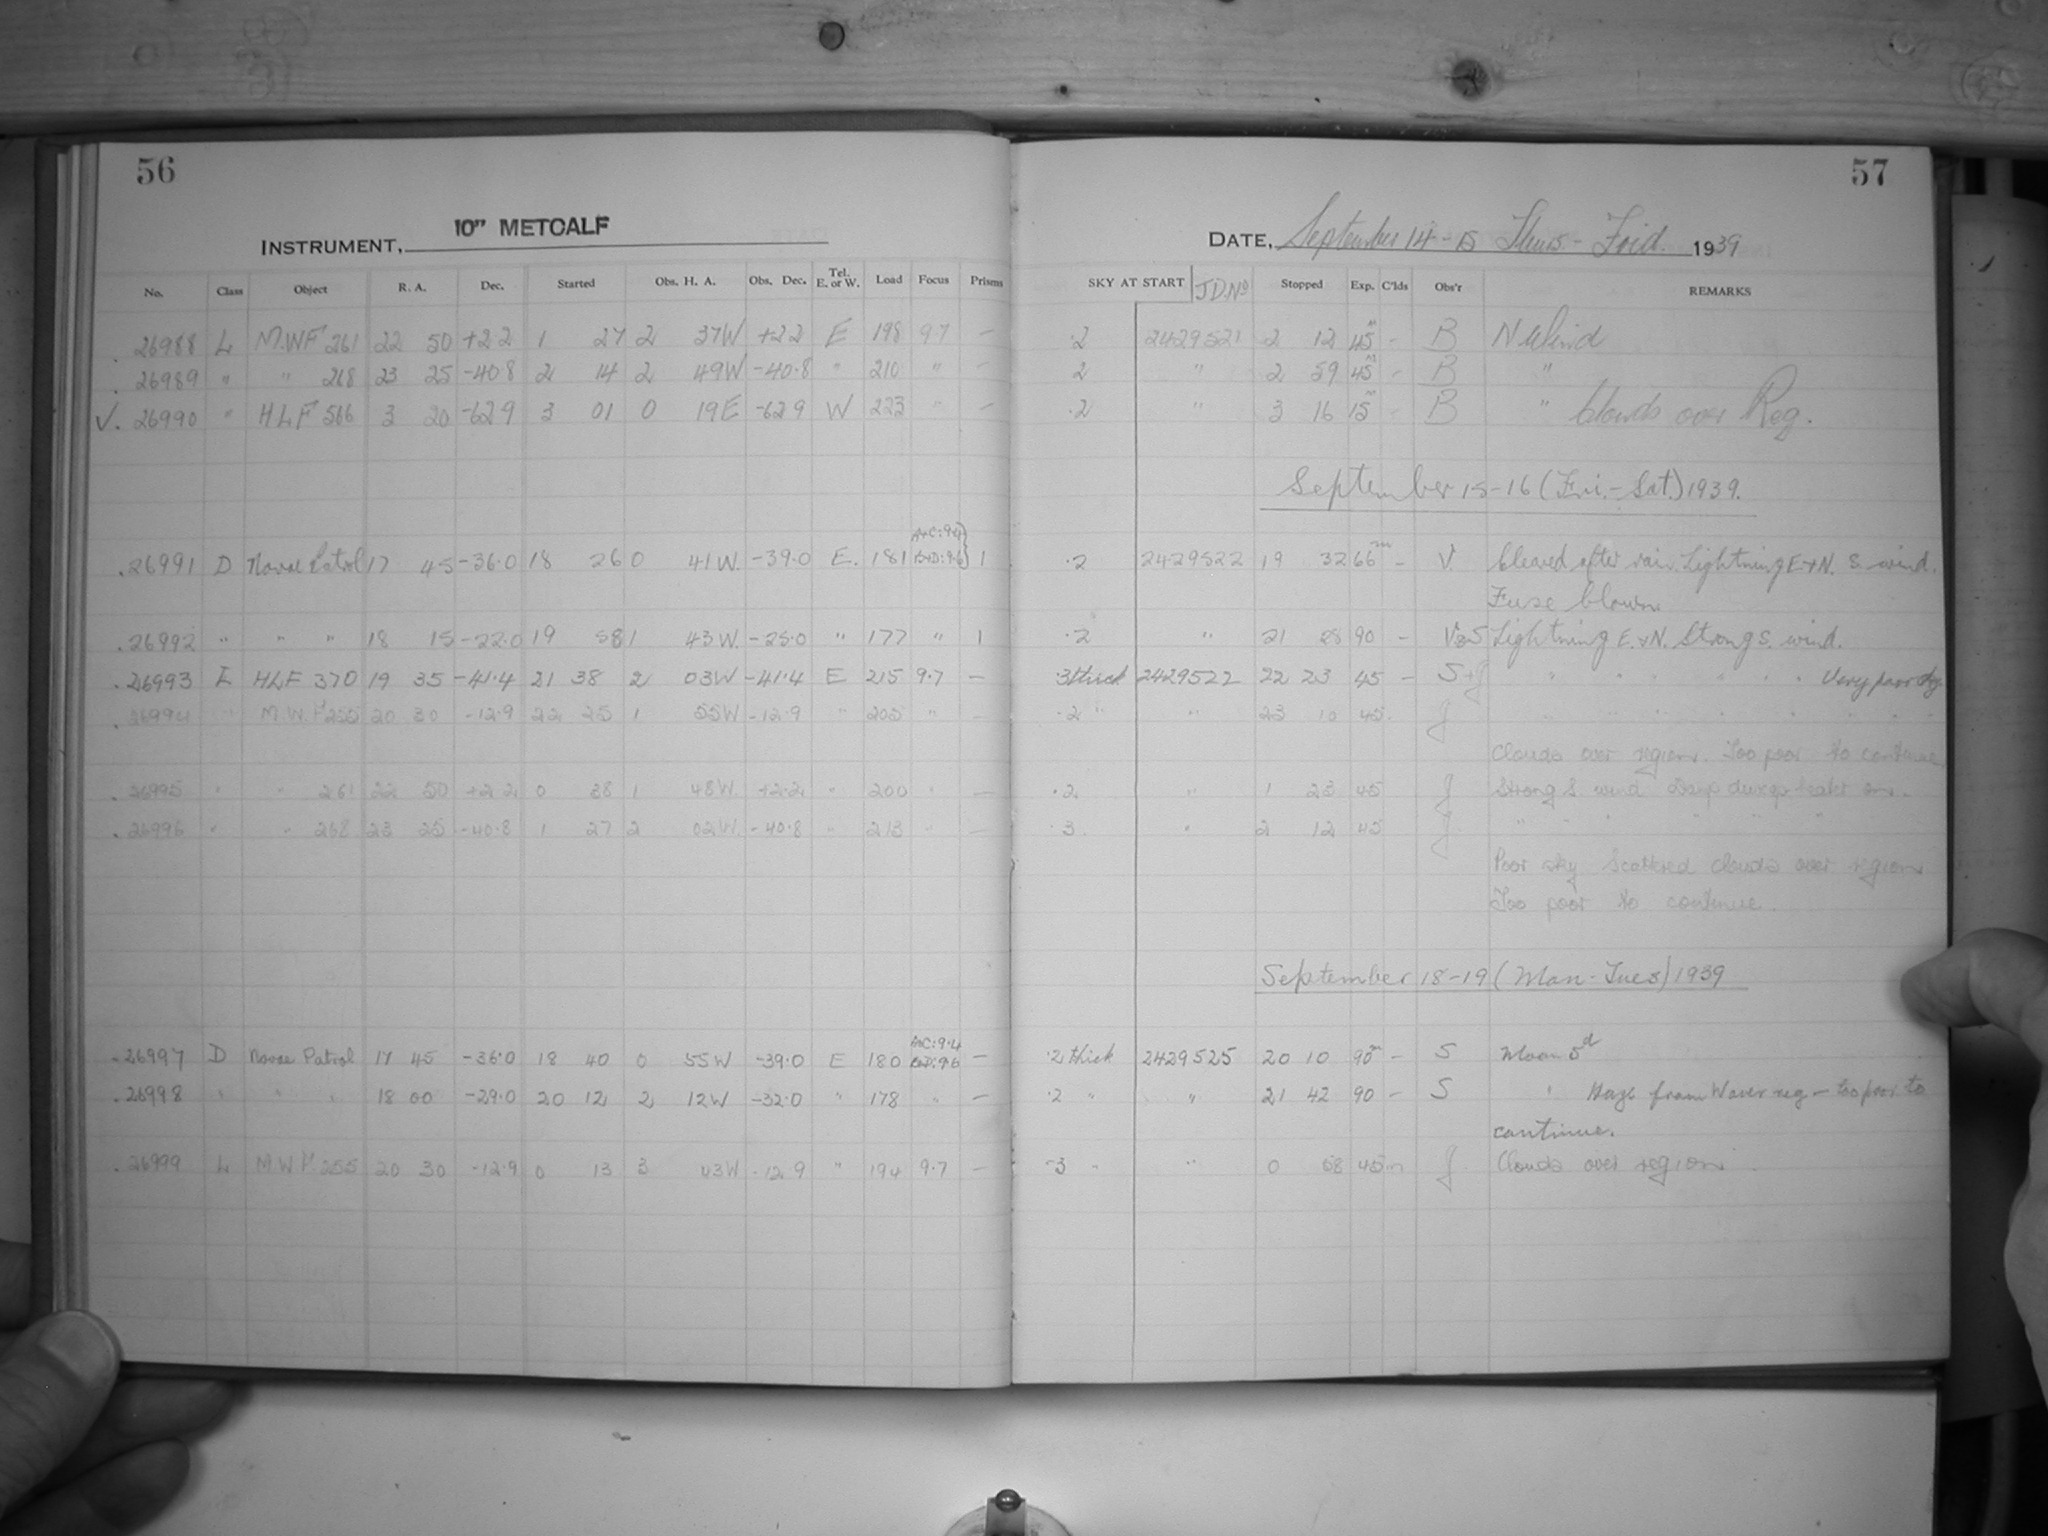 56
57
INSTRUMENT, 10" METCALF
DATE, September 14-15 Thurs - Frid. 1939
No. Class Object R. A. Dec. Started Obs. H. A. Obs. Dec. Tel. E. or W. Load Focus Prisms SKY AT START J.D. No Stopped Exp. C'lds Obs'r REMARKS
26988 L M.W.F 261 22 50 +2.2 1 27 2 37W +2.2 E 198 9.7 — .2 2429521 2 12 45m - B N Wind
26989 " " 268 23 25 -40.8 2 14 2 49W -40.8 " 210 " — 2 " 2 59 45m - B "
V. 26990 " HLF 566 3 20 -62.9 3 01 0 19E -62.9 W 223 " — .2 " 3 16 15m - B " Clouds over Reg.
September 15-16 (Fri.-Sat.) 1939.
A+C: 9.4
.26991 D Novae Patrol 17 45 -36.0 18 26 0 41W. -39.0 E. 181 B+D: 9.6} 1 .2 2429522 19 32 66m - V. Cleared after rain. Lightning E+N. S. wind.
Fuse blown.
.26992 " " " 18 15 -22.0 19 58 1 43W. -25.0 " 177 " 1 .2 " 21 28 90 - V+S Lightning E.+N. Strong S. wind.
.26993 L HLF 370 19 35 -41.4 21 38 2 03W -41.4 E 215 9.7 — 3 thick 2429522 22 23 45 - S+J " " " " " " Very poor sky.
.26994 " M.W.F 255 20 30 -12.9 22 25 1 55W -12.9 " 205 " — .2 " " 23 10 45. J " " " " " " " " "
Clouds over regions. Too poor to continue.
.26995 " " 261 22 50 +2.2 0 38 1 48W. +2.2 " 200 " — .2 " 1 23 45 J Strong S. wind
.26996 " " 268 23 25 -40.8 1 27 2 02W. -40.8 " 213 " — .3 " 2 12 45 J " " " " " "
Poor sky Scattered clouds over regions
Too poor to continue.
September 18-19 (Mon-Tues) 1939
A+C: 9.4
.26997 D Novae Patrol 17 45 -36.0 18 40 0 55W -39.0 E 180 B+D: 9.6 — .2 thick 2429525 20 10 90m - S Moon 5d
.26998 " " " 18 00 -29.0 20 12 2 12W -32.0 " 178 " — .2 " " 21 42 90 - S " Haze from reg - too poor to
continue.
.26999 L M.W.F 255 20 30 -12.9 0 13 3 43W -12.9 " 194 9.7 — .3 " " 0 58 45m J Clouds over region